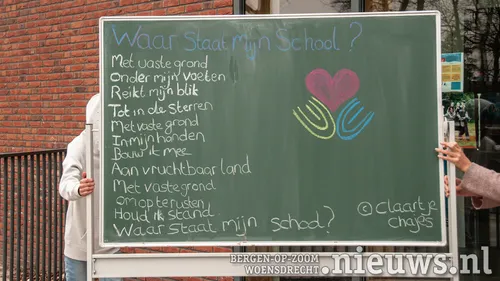 Waar Staat Mijn School?
Met vaste grond
Onder mijn voeten
Reikt mijn blik
Tot in de sterren
Met vaste grond
In mijn handen
Bouw ik mee
Aan vruchtbaar land
Met vaste grond
om op te rusten
Houd ik stand
Waar staat mijn school?
© Claartje
Chajes
BERGEN-OP-ZOOM
WOENSDRECHT
.nieuws.nl